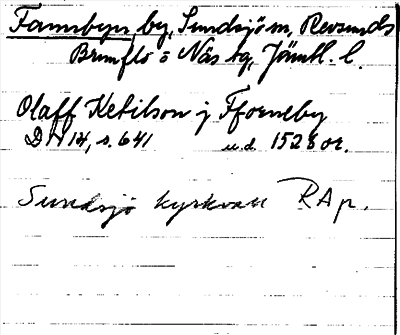 Fannbyn, by, Sundsjö sn, Revsunds
Brunflo o Näs tg, Jämtl. l.
Olaff Ketilson j Fforneby
DN 14, s. 641 u.d. 1528 or.
Sundsjö kyrkvall RAp.